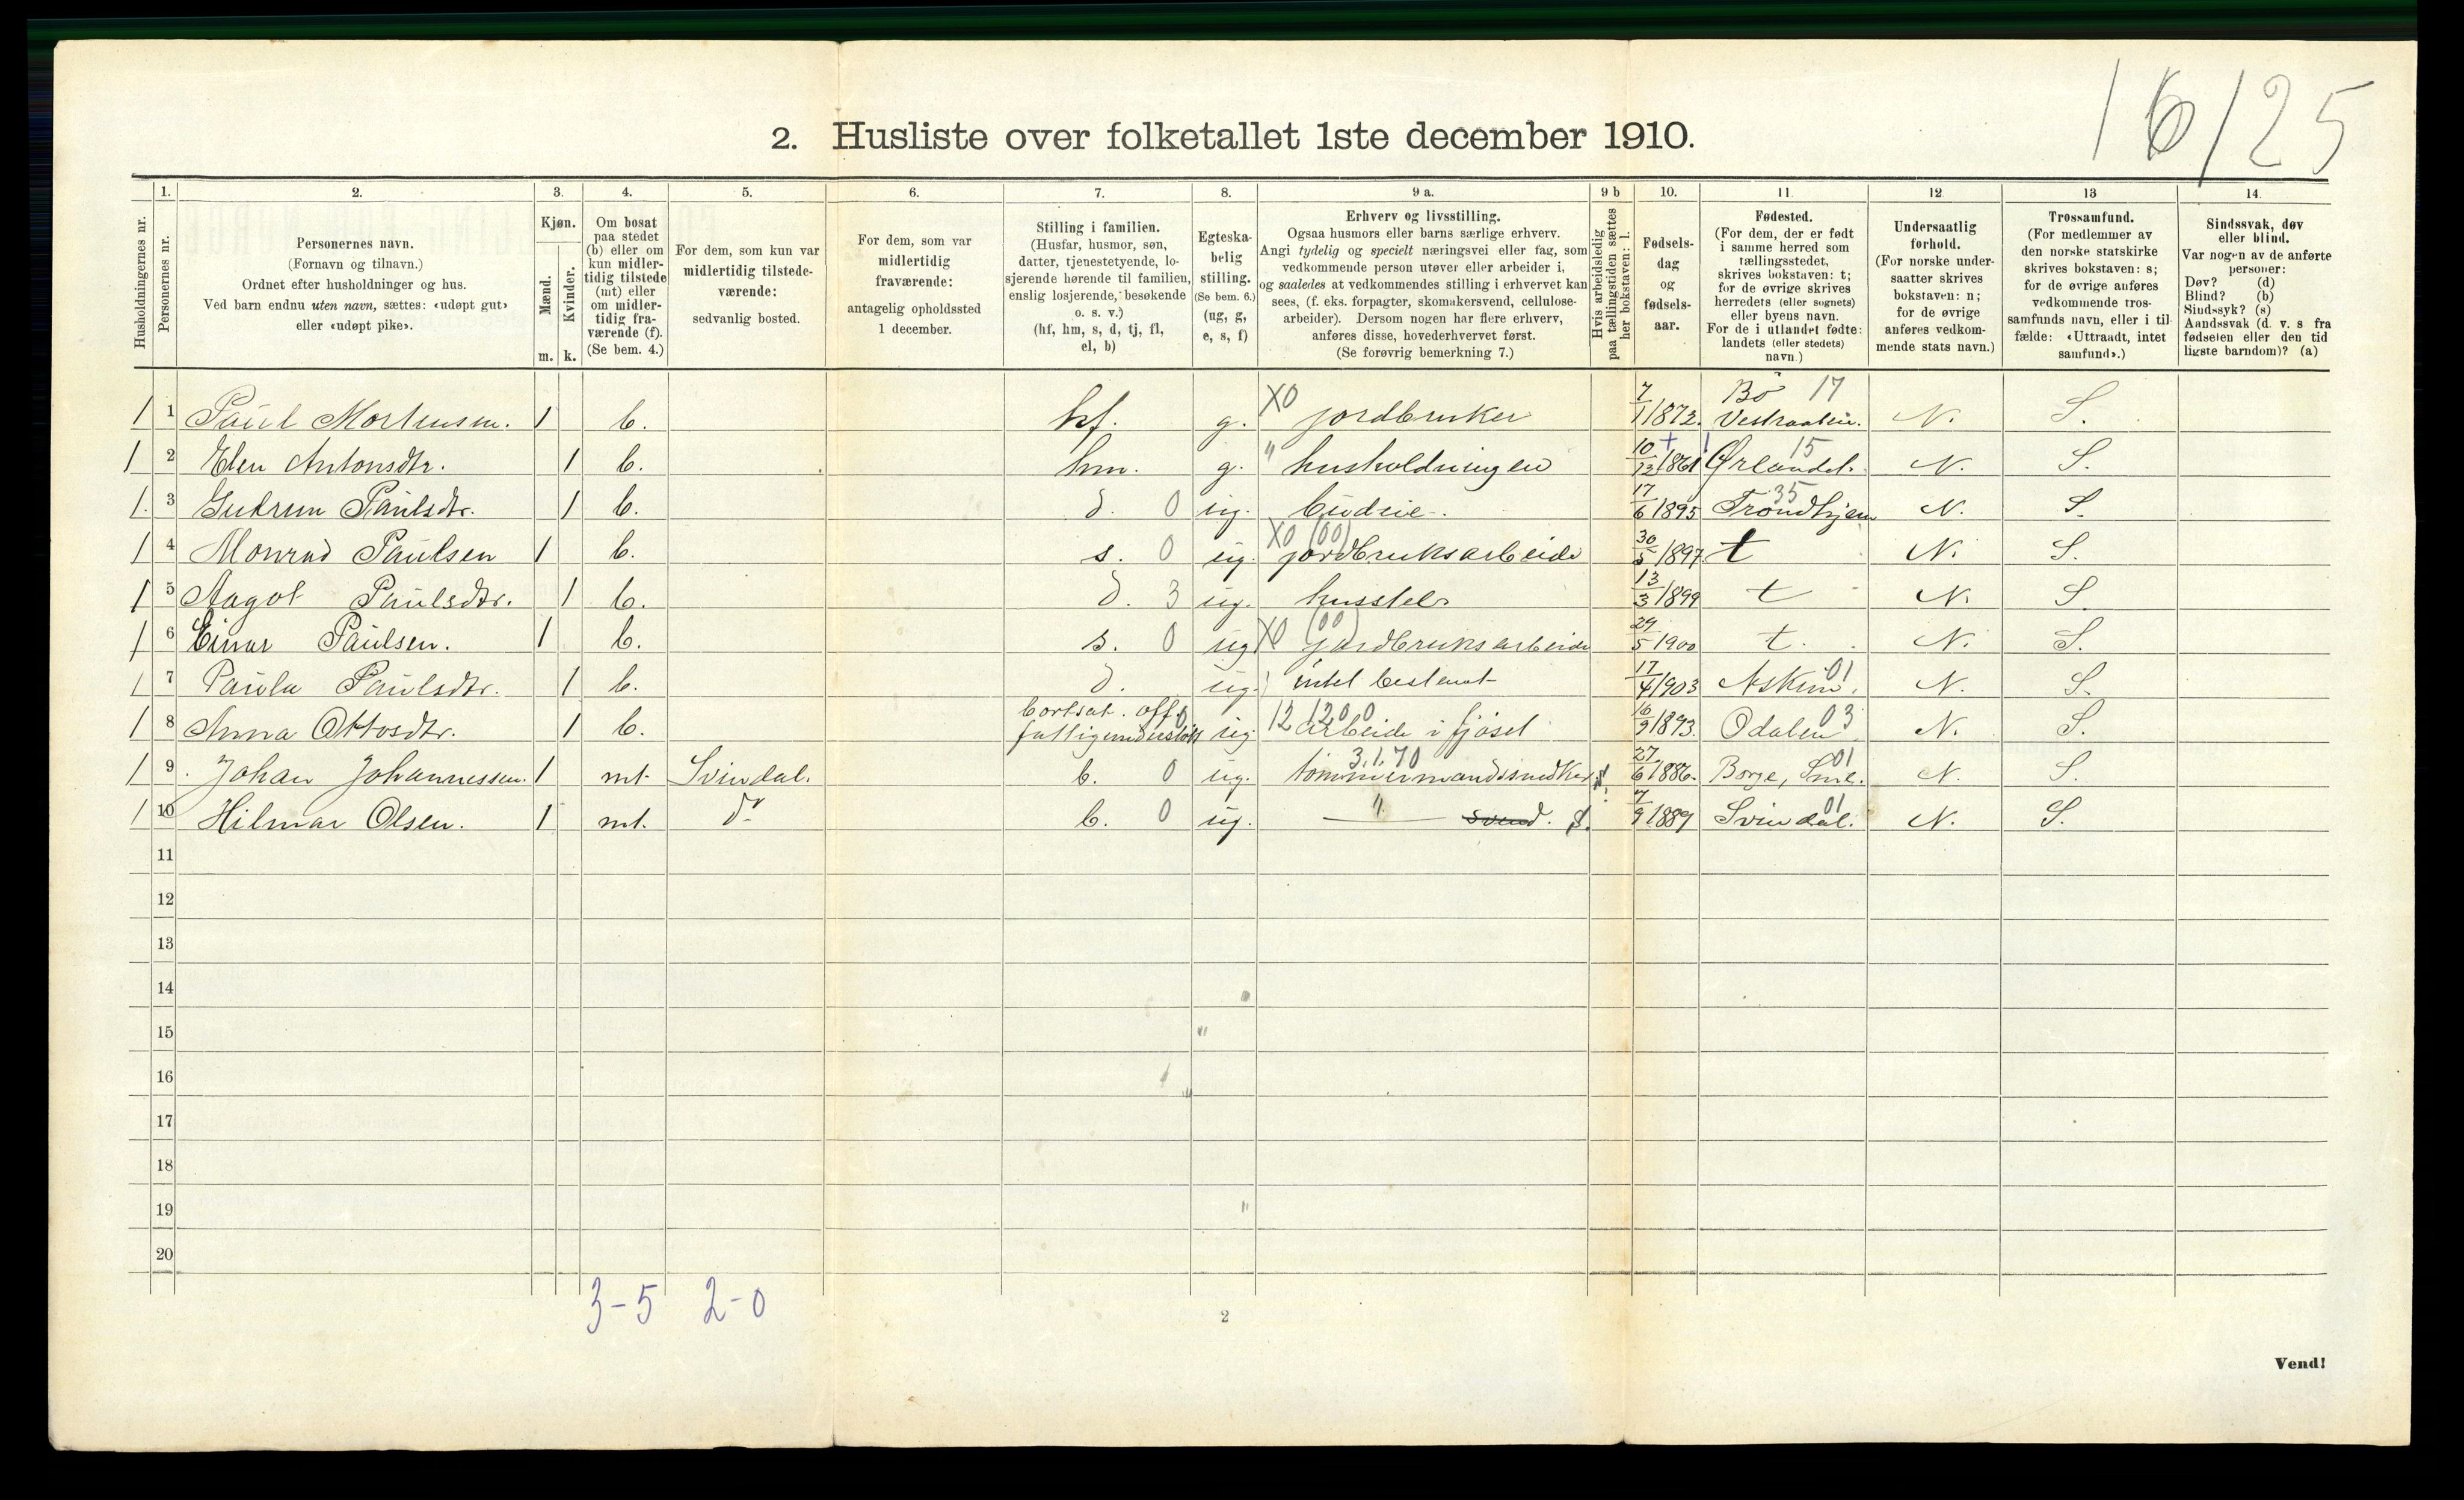 16/25
2. Husliste over folketallet 1ste december 1910.
1. 2. 3. 4. 5. 6. 7. 8. 9 a. 9 b 10. 11 12 13 14
Husholdningernes nr.
Personernes nr.
Personernes navn.
(Fornavn og tilnavn.)
Ordnet efter husholdninger og hus.
Ved barn endnu uten navn, sættes: «udøpt gut»
eller «udøpt pike».
Kjøn.
Mænd.
Kvinder.
m. k.
Om bosat
paa stedet
(b) eller om
kun midler-
tidig tilstede
(mt) eller
om midler-
tidig fra-
værende (f).
(Se bem. 4.)
For dem, som kun var
midlertidig tilstede-
værende:
sedvanlig bosted.
For dem, som var
midlertidig
fraværende:
antagelig opholdssted
1 december.
Stilling i familien.
(Husfar, husmor, søn,
datter, tjenestetyende, lo-
sjerende hørende til familien,
enslig losjerende, besøkende
o. s. v.)
(hf, hm, s, d, tj, fl,
el, b)
Egteska-
belig
stilling.
(Se bem. 6.)
(ug, g,
e, s, f)
Erhverv og livsstilling.
Ogsaa husmors eller barns særlige erhverv.
Angi tydelig og specielt næringsvei eller fag, som
vedkommende person utøver eller arbeider i,
og saaledes at vedkommendes stilling i erhvervet kan
sees, (f. eks. forpagter, skomakersvend, cellulose-
arbeider). Dersom nogen har flere erhverv,
anføres disse, hovederhvervet først.
(Se forøvrig bemerkning 7.)
Hvis arbeidsledig
paa tællingstiden sættes
her bokstaven: l.
Fødsels-
dag
og
fødsels-
aar.
Fødested.
(For dem, der er født
i samme herred som
tællingsstedet,
skrives bokstaven: t;
for de øvrige skrives
herredets (eller sognets)
eller byens navn.
For de i utlandet fødte:
landets (eller stedets)
navn.)
Undersaatlig
forhold.
(For norske under-
saatter skrives
bokstaven: n;
for de øvrige
anføres vedkom-
mende stats navn.)
Trossamfund.
(For medlemmer av
den norske statskirke
skrives bokstaven: s;
for de øvrige anføres
vedkommende tros-
samfunds navn, eller i til
fælde: «Uttraadt, intet
samfund».)
Sindssvak, døv
eller blind.
Var nogen av de anførte
personer:
Døv? (d)
Blind? (b)
Sindssyk? (s)
Aandssvak (d. v. s fra
fødselen eller den tid
ligste barndom)? (a)
1 1 Paul Mortensen. 1 b. hf. g. X0 jordbruker 7/1 1872. Bö 17 Vestraalen. N. S.
1 2 Elen Antonsdtr. 1 b. hm. g. " husholdningen 10/12 1861 Ørlandet. 15 N. S.
1. 3 Gudrun Paulsdtr. 1 b. d. 0 ug. budeie. 17/6 1895 Trondhjem 35 N. S.
1 4 Monrad Paulsen 1 b. s. 0 ug. X0 (00) jordbruksarbeide 30/5 1897. t N. S.
1 5 Aagot Paulsdtr. 1 b. d. 3 ug. husstel 13/3 1899 t N. S.
1 6 Einar Paulsen. 1 b. s. 0 ug X0 (00) jordbruksarbeide 29/5 1900 t. N. S.
1 7 Paula Paulsdtr. 1 b. d. ug. intet bestemt 17/4 1903 Askim. 01 N. S.
1 8 Anna Ottosdtr. 1 b. bortsat. off. fattigunderstöt 0 ug. 12 1200 arbeide i fjöset 16/9 1893. Odalen 03 N. S.
1 9 Johan Johannessen. 1 mt Svindal. b. 0 ug. 3.1.70 tömmermandssnedker 27/6 1886. Borge, Sml. 01 N. S.
1 10 Hilmar Olsen. 1 mt. do b. 0 ug. " svend. 7/9 1889 Svindal. 01 N. S.
11
12
13
14
15
16
17
18
19
20
3-5 2-0
2
Vend!